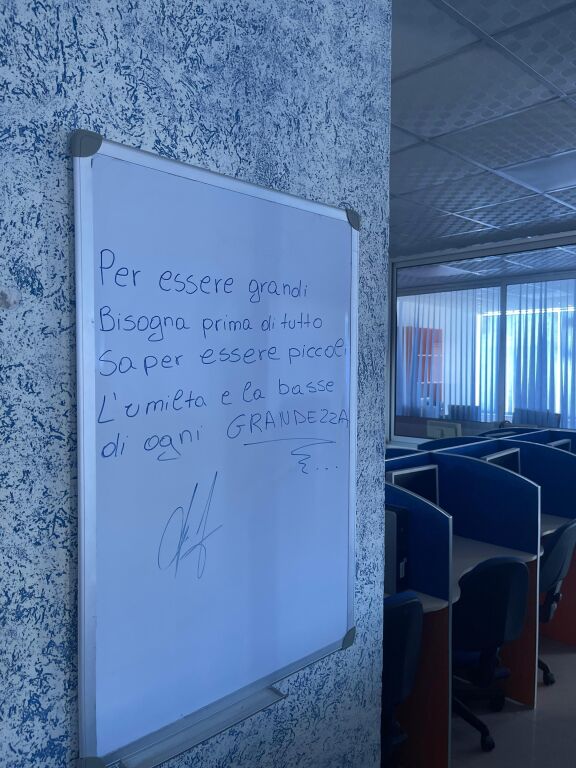 Per essere grandi
Bisogna prima di tutto
Saper essere piccoli
L'umilta e la basse
di ogni GRANDEZZA
...